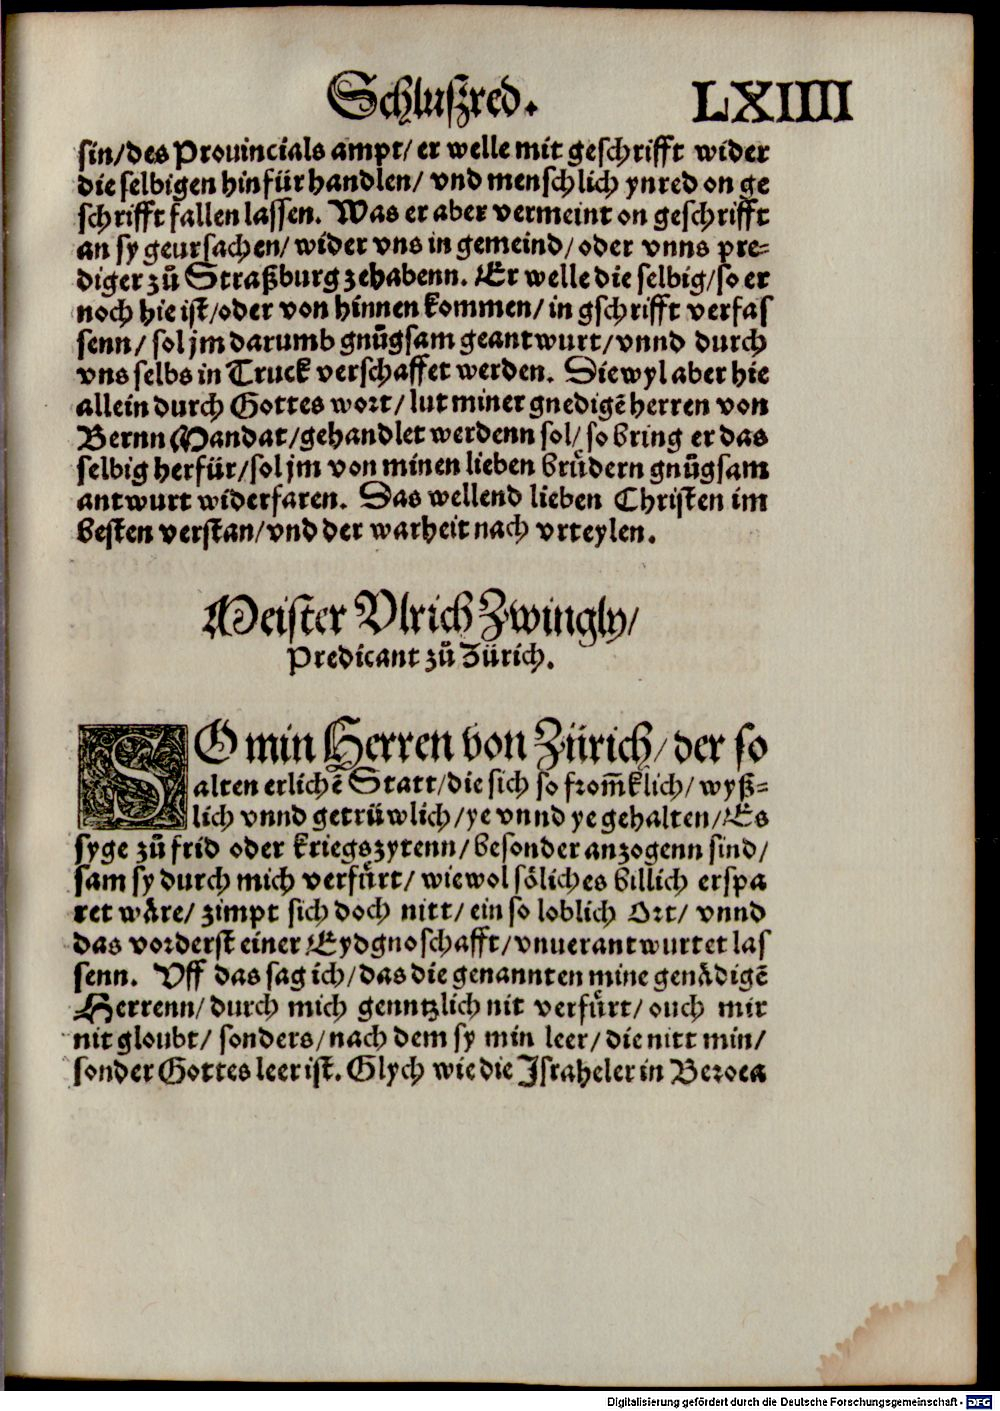 Schlußred. LXIIII
sin/des Prouincials ampt/ er welle mit geschrifft wider
die selbigen hinfür handlen/ vnd menschlich ynred on ge
schrifft fallen lassen. Was er aber vermeint on geschrifft
an sy geursachen/ wider vns in gemeind/ oder vnns pre⸗
diger zů Straßburg zehabenn. Er welle die selbig/so er
noch hie ist/oder von hinnen kommen/ in gschrifft verfas
senn/ sol jm darumb gnůgsam geantwurt/ vnnd durch
vns selbs in Truck verschaffet werden. Diewyl aber hie
allein durch Gottes wort/ lut miner gnedigē herren von
Bernn Mandat/gehandlet werdenn sol/ so bring er das
selbig herfür/sol jm von minen lieben brüdern gnůgsam
antwurt widerfaren. Das wellend lieben Christen im
besten verstan/vnd der warheit nach vrteylen.
Meister Vlrich Zwingly/
Predicant zů Zürich.
SO min Herren von Zürich/ der so
alten erlichē Statt/die sich so from̄klich/ wyß⸗
lich vnnd getrüwlich/ye vnnd ye gehalten/Es
syge zů frid oder kriegszytenn/besonder anzogenn sind/
sam sy durch mich verfürt/ wiewol söliches billich erspa
ret wäre/ zimpt sich doch nitt/ ein so loblich Ort/ vnnd
das vorderst einer Eydgnoschafft/vnuerantwurtet las
senn. Vff das sag ich/das die genannten mine genädigē
Herrenn/ durch mich genntzlich nit verfürt/ ouch mir
nit gloubt/ sonders/nach dem sy min leer/die nitt min/
sonder Gottes leer ist. Glych wie die Israheler in Beroea
Digitalisierung gefördert durch die Deutsche Forschungsgemeinschaft - DFG